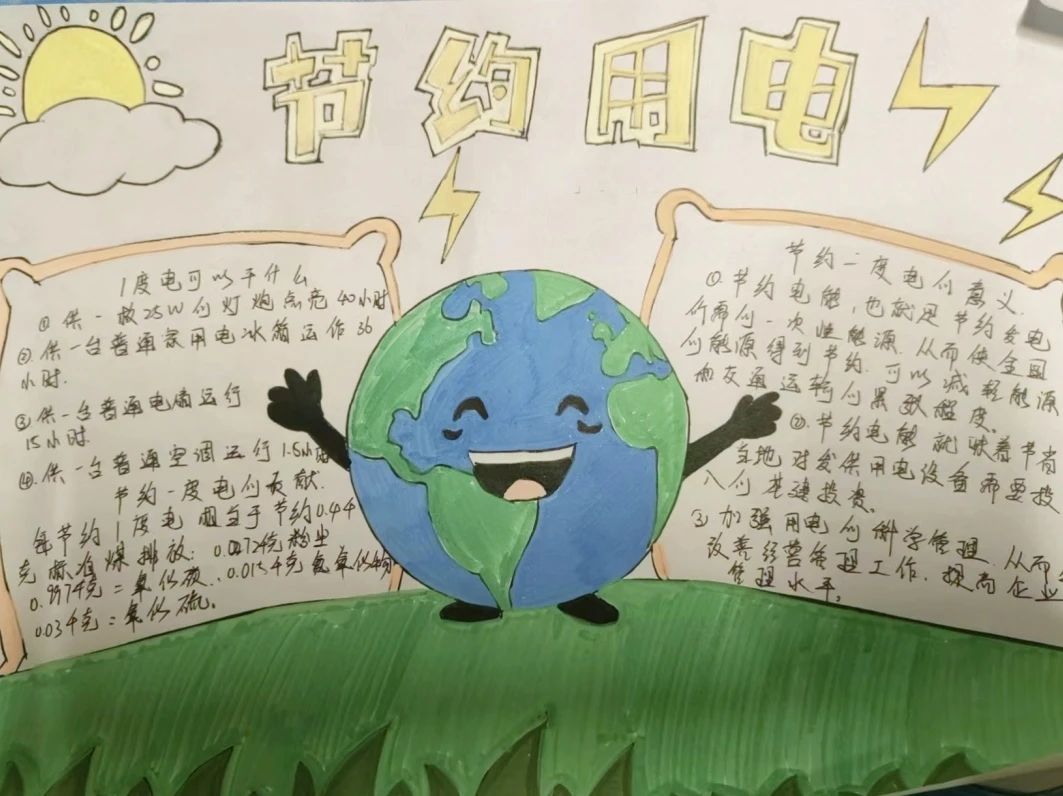 节约用电
1度电可以干什么
① 供一枚25W的灯炮点亮40小时
②.供一台普通家用电冰箱运作36
小时.
③.供一台普通电扇运行
15小时
④.供一台普通空调运行1.5小时
节约一度电的贡献.
每节约1度电相当于节约0.44
克标准煤排放:0.00274克粉尘
0.997千克二氧化碳.0.015千克氮氧化物
0.03千克二氧化硫.
节约二度电的意义.
①节约电能,也就是节约发电
所需的一次性能源.从而使全国
的能源得到节约.可以减轻能源
和交通运输的紧张程度。
②.节约电能就味着节省
当地对发供用电设备需要投
入的基建投资。
③加强用电的科学管理.从而
改善经营管理工作.提高企业
管理水平.